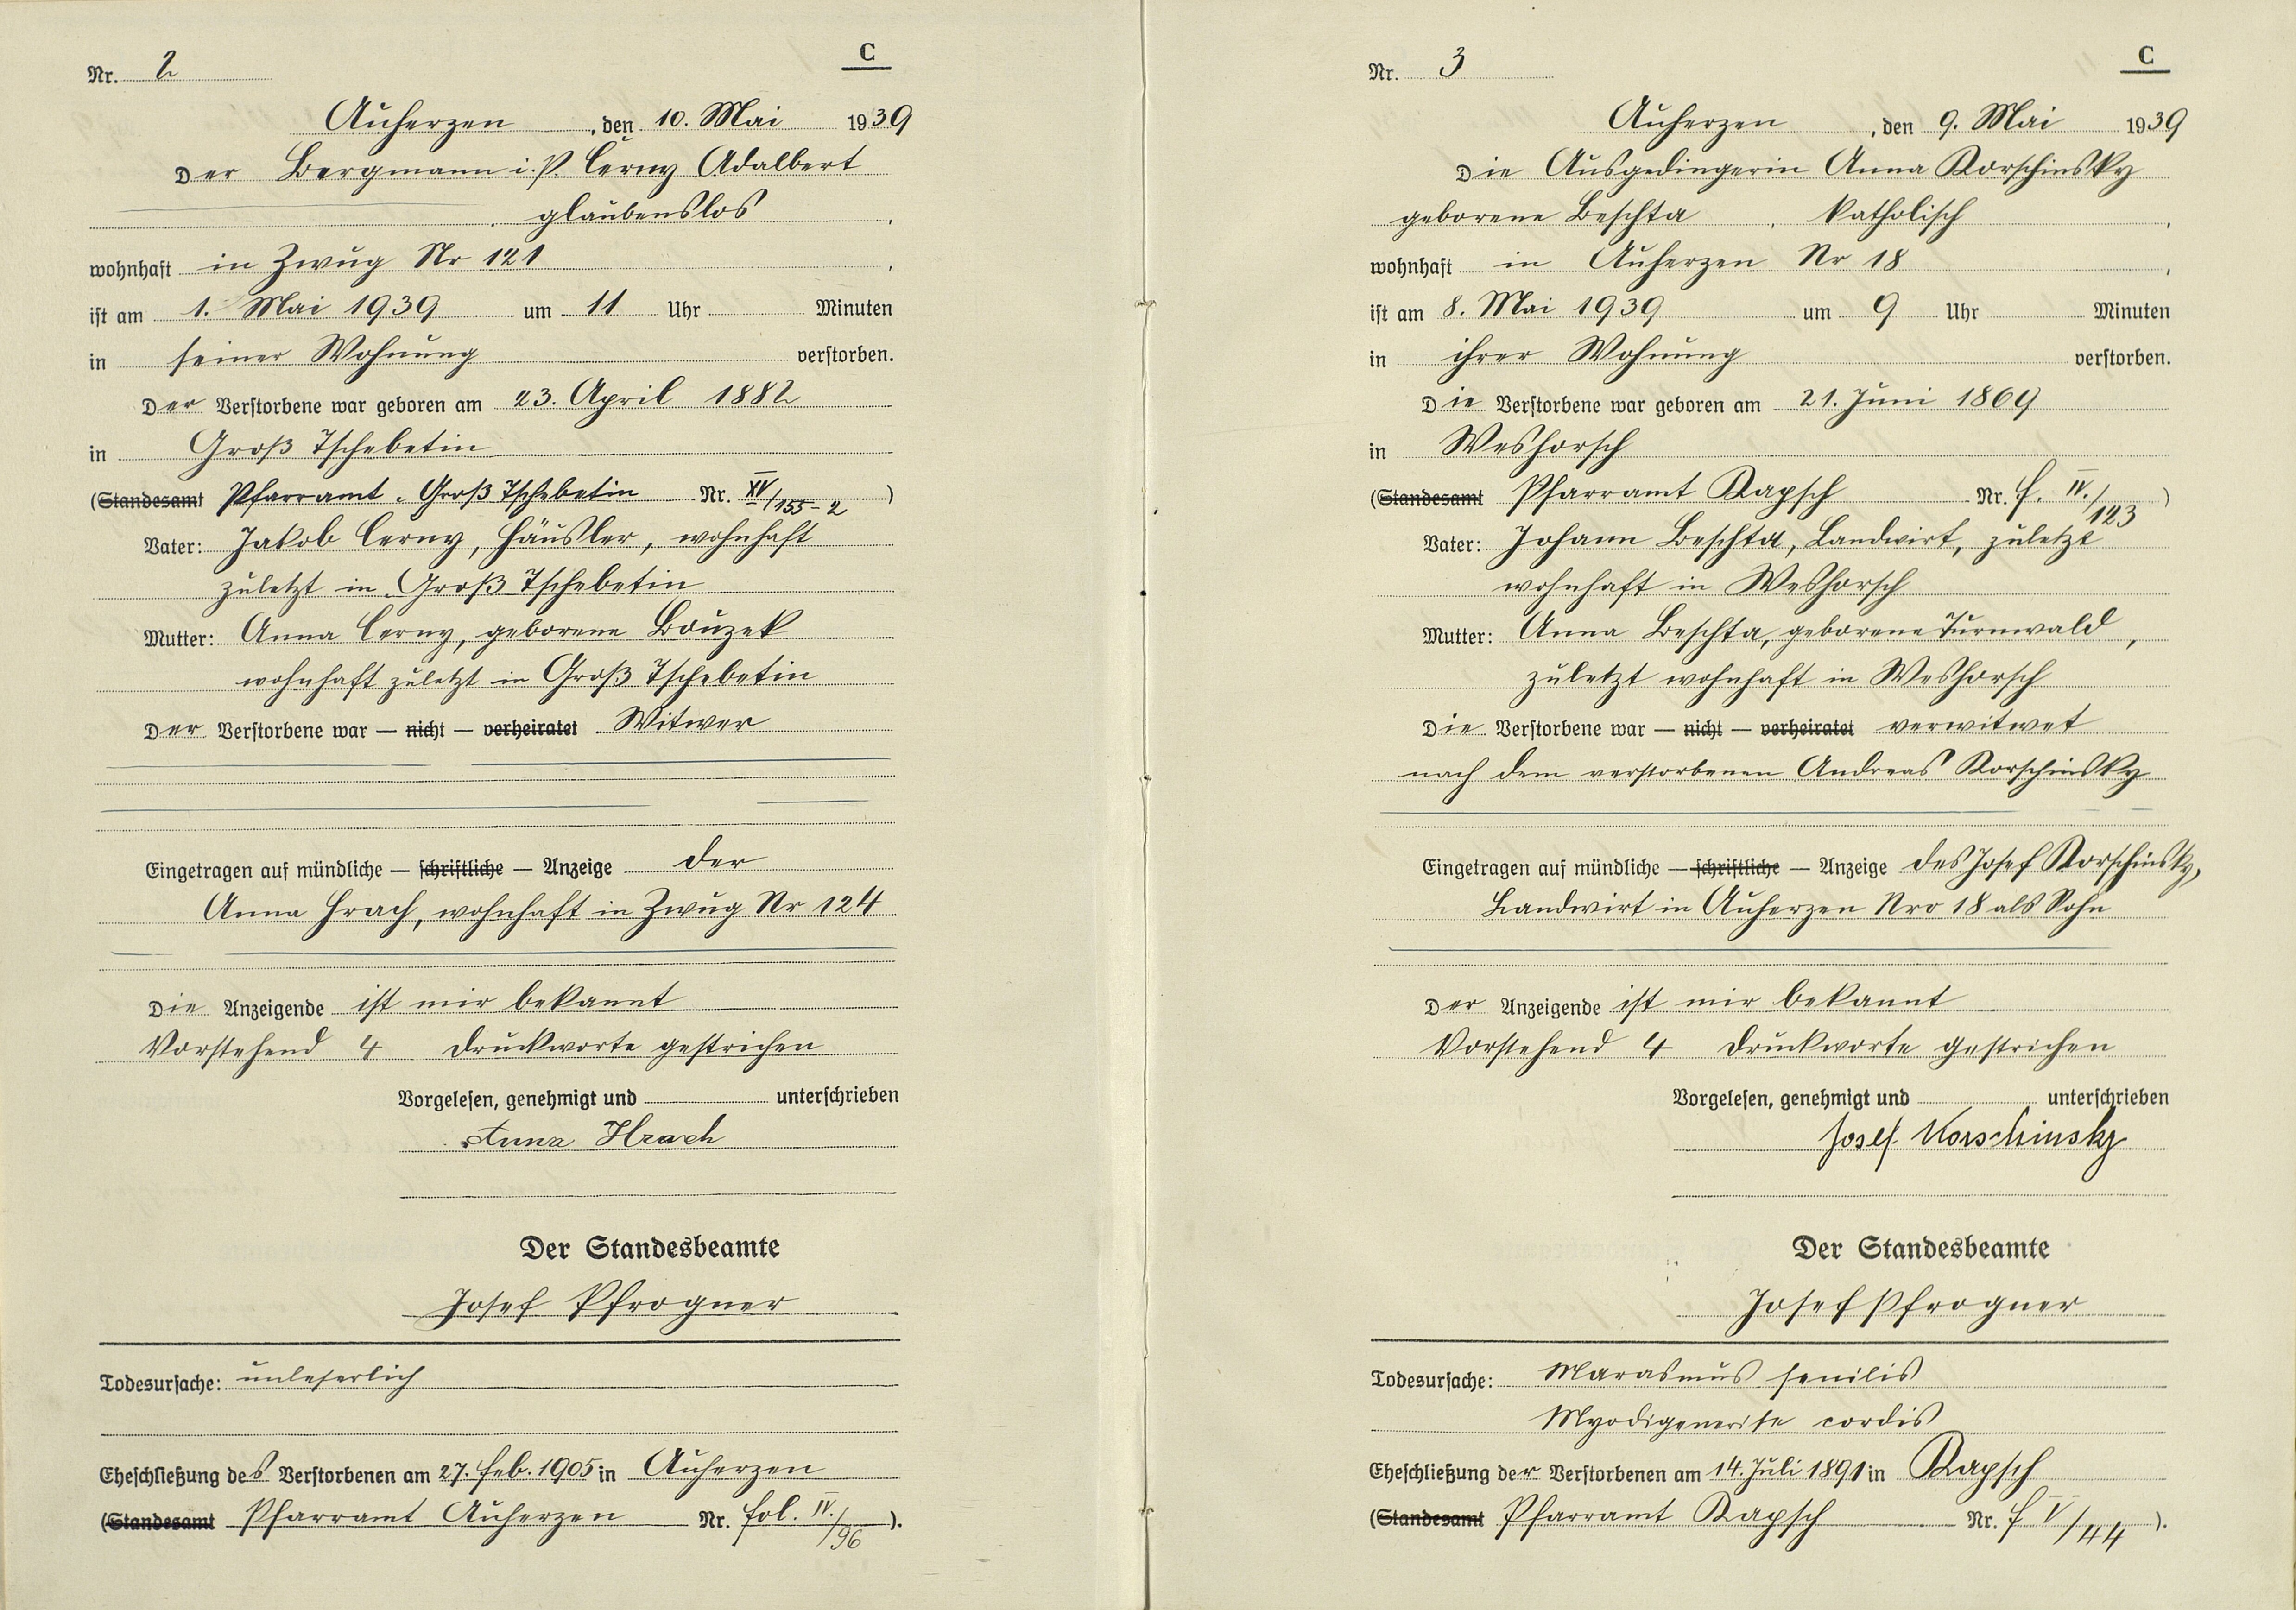 Nr. 2
C
Auherzen, den 10. Mai 1939
Der Bergmann i. P. Černy Adalbert
glaubenslos
wohnhaft in Zwug Nr 121
ist am 1. Mai 1939 um 11 Uhr Minuten
in seiner Wohnung verstorben.
Der Verstorbene war geboren am 23. April 1882
in Groß Tschebetin
(Standesamt Pfarramt Groß Tschebetin Nr. XV/155-2)
Vater: Jakob Cerny, Häusler, wohnhaft
zuletzt in Groß Tschebetin
Mutter: Anna Cerny, geborene Bouzek
wohnhaft zuletzt in Groß Tschebetin
Der Verstorbene war — nicht — verheiratet Witwer
Eingetragen auf mündliche — schriftliche — Anzeige der
Anna Hrach, wohnhaft in Zwug Nr 124
Die Anzeigende ist mir bekannt
Vorstehend 4 Druckworte gestrichen
Vorgelesen, genehmigt und unterschrieben
Anna Hrach
Der Standesbeamte
Josef Pfrogner
Todesursache: unleserlich
Eheschließung des Verstorbenen am 27. Feb. 1905 in Auherzen
(Standesamt Pfarramt Auherzen Nr. fol. IV./96).
Nr. 3
C
Auherzen, den 9. Mai 1939
Die Ausgedingerin Anna Korschinsky
geborene Beschta, katholisch,
wohnhaft in Auherzen Nr 18,
ist am 8. Mai 1939 um 9 Uhr Minuten
in ihrer Wohnung verstorben.
Die Verstorbene war geboren am 21. Juni 1869
in Weshorsch
(Standesamt Pfarramt Kapsch Nr. f. IV./123)
Vater: Johann Beschta, Landwirt, zuletzt
wohnhaft in Weshorsch
Mutter: Anna Beschta, geborene Turnwald,
zuletzt wohnhaft in Weshorsch
Die Verstorbene war — nicht — verheiratet verwitwet
nach dem verstorbenen Andreas Korschinsky
Eingetragen auf mündliche — schriftliche — Anzeige des Josef Korschinsky,
Landwirt in Auherzen Nro 18 als Sohn
Der Anzeigende ist mir bekannt
Vorstehend 4 Druckworte gestrichen
Vorgelesen, genehmigt und unterschrieben
Josef Korschinsky
Der Standesbeamte
Josef Pfrogner
Todesursache: Marasmus senilis
Myodigenerite cordis
Eheschließung der Verstorbenen am 14. Juli 1891 in Kapsch
(Standesamt Pfarramt Kapsch Nr. f V/44).